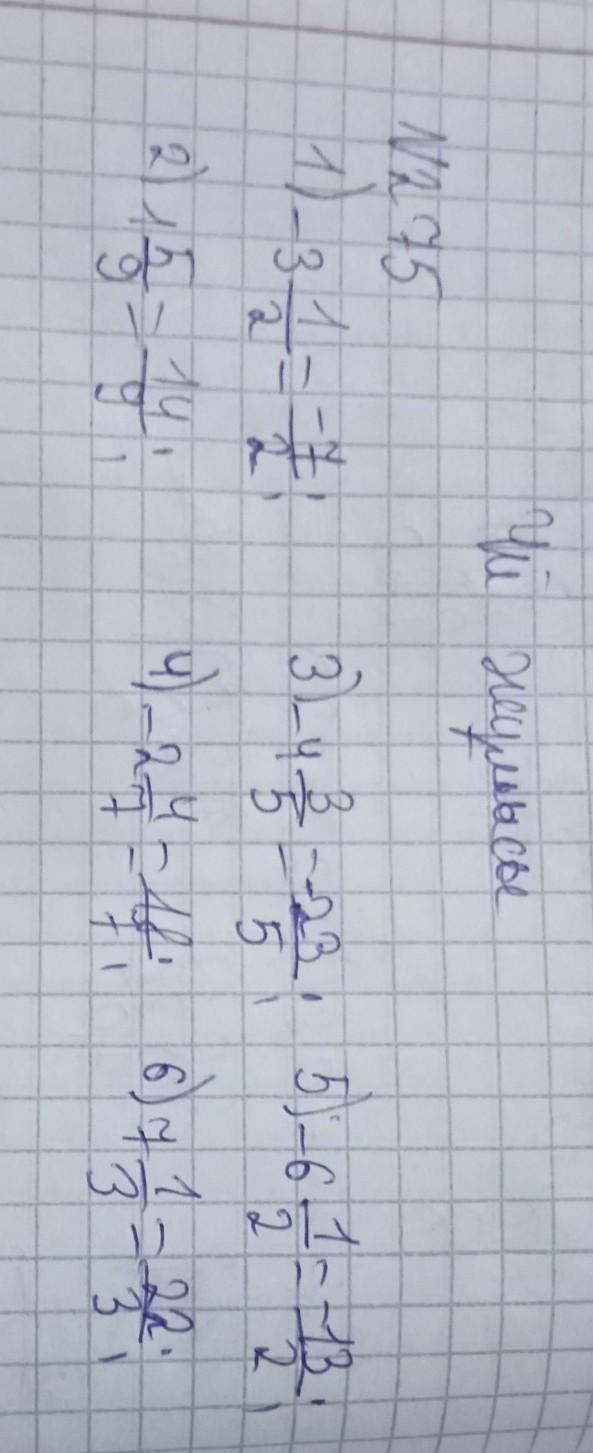 Үй жұмысы
№75
1) -3 1/2 = -7/2; 3) -4 3/5 = -23/5; 5) -6 1/2 = -13/2;
2) 1 5/9 = 14/9; 4) -2 4/7 = 18/7; 6) 7 1/3 = 22/3;